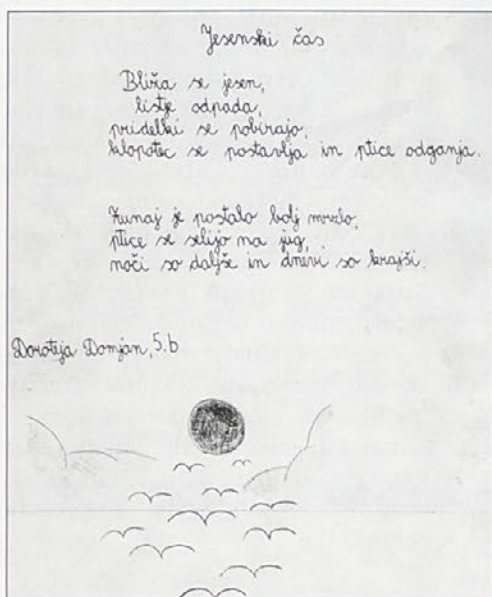 Jesenski čas
Bliža se jesen,
listje odpada,
pridelki se pobirajo,
klopotec se postavlja in ptice odganja.
Zunaj je postalo bolj mrzlo,
ptice se selijo na jug,
noči so daljše in dnevi so krajši.
Doroteja Domjan, 5.b